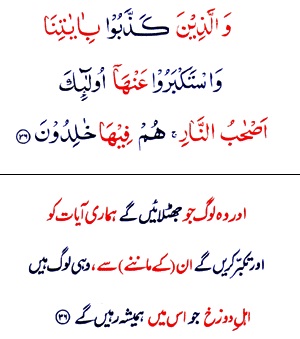 وَالَّذِيْنَ كَذَّبُوْا بِاٰيٰتِنَا
وَاسْتَكْبَرُوْا عَنْهَاۤ اُولٰٓئِكَ
اَصْحٰبُ النَّارِ ۚ هُمْ فِيْهَا خٰلِدُوْنَ ﴿۳۶﴾
اور وہ لوگ جو جھٹلائیں گے ہماری آیات کو
اور تکبر کریں گے ان (کے ماننے) سے، وہی لوگ ہیں
اہلِ دوزخ جو اس میں ہمیشہ رہیں گے ﴿۳۶﴾